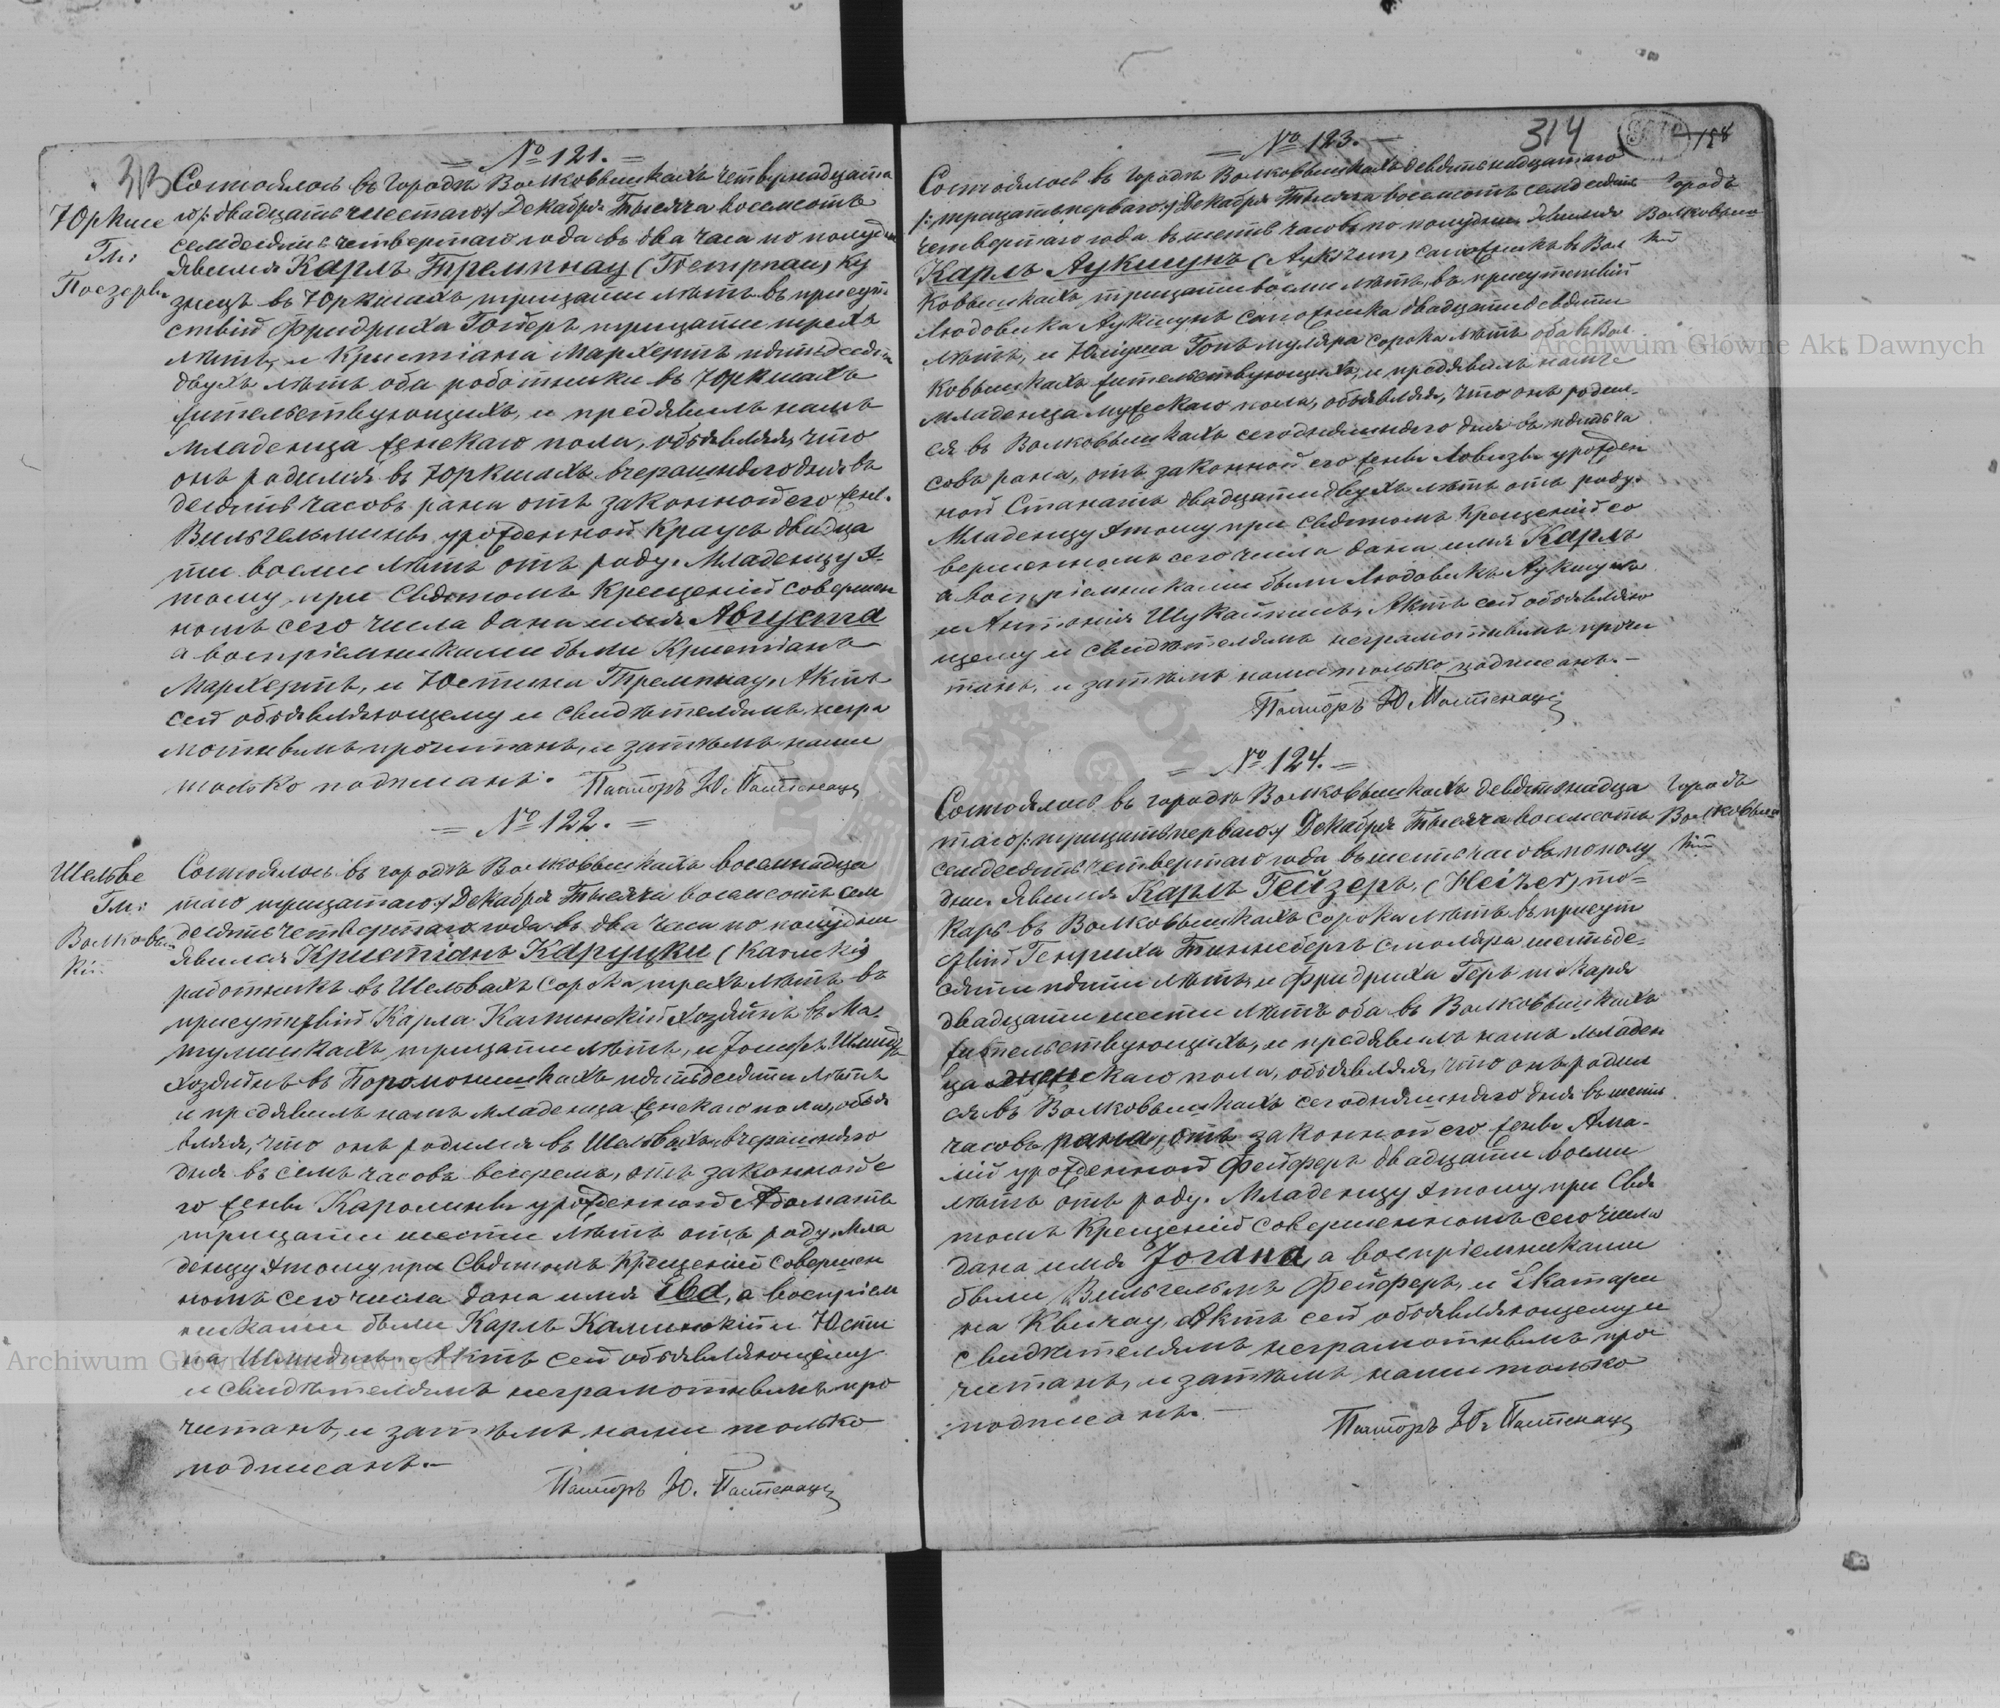 313
№ 121.
Юркше
Гм:
Поезеры
Состоялось въ городѣ Волковышкахъ четырнадцата
го /: двадцать шестаго :/ Декабря Тысяча восемсотъ
семдесятъ четвертаго года въ два часа по полудни
Явился Карлъ Тремпнау (Tremnau) куз
знецъ въ Юркшахъ, тридцати лѣтъ въ присут
ствіи Фридриха Гойеръ тридцати трехъ
лѣтъ, и Кристіана Мархертъ пятидесяти
двухъ лѣтъ оба работники въ Юркшахъ
жительствующихъ, и предявилъ намъ
младенца женскаго пола, объявляя, что
онъ родился въ Юркшахъ вчерашняго дня въ
десять часовъ рана отъ законной его жены
Вильгельмины урожденной Краусъ двадца
ти восми лѣтъ отъ роду. Младенцу э-
тому при Святомъ Крещеніи совершен
номъ сего числа дано имя Августа
а воспріемниками были Кристіанъ
Мархертъ, и Юстина Тремпнау. Актъ
сей объявляющему и свидѣтелямъ негра
мотнымъ прочитанъ, и затѣмъ нами
только подписанъ. Пасторъ Ю. Пастенаци
№ 122.
Шельве
Гм:
Волковыш
кій
Состоялось въ городѣ Волковышкахъ восемнадца
таго тридцатаго :/ Декабря Тысяча восемсотъ сем
десятъ четвертаго года въ два часа по полудни
Явился Кристіанъ Каруцки
работникъ въ Шельвахъ сорока трехъ лѣтъ въ
присутствіи Карла Калинскій хозяинъ въ Ма-
тулишкахъ, тридцати лѣтъ, и Іосифъ Шмидтъ
хозяинъ въ Поромонишкахъ пятьдесяти лѣтъ
и предявилъ намъ младенца женскаго пола, объя
вляя, что онъ родился въ Шельвахъ вчерашняго
дня въ семь часовъ вечеромъ, отъ законной е
го жены Каролины урожденной Адоматъ
тридцати шести лѣтъ отъ роду. Мла
денцу этому при Святомъ Крещеніи совершен
номъ сего числа дано имя Ева, а воспріем
никами были Карлъ Калинскій и Юсти
на Шмидтъ. Актъ сей объявляющему
и свидѣтелямъ неграмотнымъ про
читанъ, и затѣмъ нами только
подписанъ.
Пасторъ Ю. Пастенаци
№ 123.
314
158
Городъ
Волковыш
кій
Состоялось въ городѣ Волковышкахъ девятьнадцатаго
/: тридцать перваго :/ Декабря Тысяча восемсотъ семдесятъ
четвертаго года въ шесть часовъ по полудни Явился
Карлъ Аукшунъ (Aukszun) сапожникъ въ Вол
ковышкахъ тридцати восми лѣтъ, въ присутствіи
Людовика Аукшунъ сапожника двадцати девяти
лѣтъ, и Юліуса Гопъ муляра сорока лѣтъ оба въ Вол
ковышкахъ жительствующихъ, и предявилъ намъ
младенца мужескаго пола, объявляя, что онъ родил-
ся въ Волковышкахъ сегодняшняго дня въ пять ча
совъ рана, отъ законной его жены Ловизы урожден
ной Станатъ двадцати двухъ лѣтъ отъ роду.
Младенцу этому при Святомъ Крещеніи со
вершенномъ сего числа дано имя Карлъ
а воспріемниками были Людовикъ Аукшунъ
и Антонія Шукайтисъ, Актъ сей объявляю
щему и свидѣтелямъ неграмотнымъ прочи
танъ, и затѣмъ нами только подписанъ.
Пасторъ Ю. Пастенаци
№ 124.
Городъ
Волковыш
кій
Состоялось въ городѣ Волковышкахъ девятьнадца
таго /: тридцать перваго :/ Декабря Тысяча восемсотъ
семдесятъ четвертаго года въ шесть часовъ по полу
дни Явился Карлъ Гейзеръ, (Heizer) то-
каръ въ Волковышкахъ сорока лѣтъ въ присут
ствіи Генриха Танненбергъ смоляра шестьде-
сяти пяти лѣтъ, и Фридриха Геръ токаря
двадцати шести лѣтъ оба въ Волковышкахъ
жительствующихъ, и предявилъ намъ младен
ца женскаго пола, объявляя, что онъ родил
ся въ Волковышкахъ сегодняшняго дня въ шесть
часовъ рана, отъ законной его жены Ама-
ліи урожденной Фейферъ двадцати восми
лѣтъ отъ роду. Младенцу этому при Свя
томъ Крещеніи совершенномъ сего числа
дано имя Іогана, а воспріемниками
были Вильгельмъ Фейферъ, и Екатари
на Квичау, Актъ сей объявляющему и
свидѣтелямъ неграмотнымъ про
читанъ, и затѣмъ нами только
подписанъ.
Пасторъ Ю. Пастенаци
Archiwum Główne Akt Dawnych
Archiwum Główne Akt Dawnych